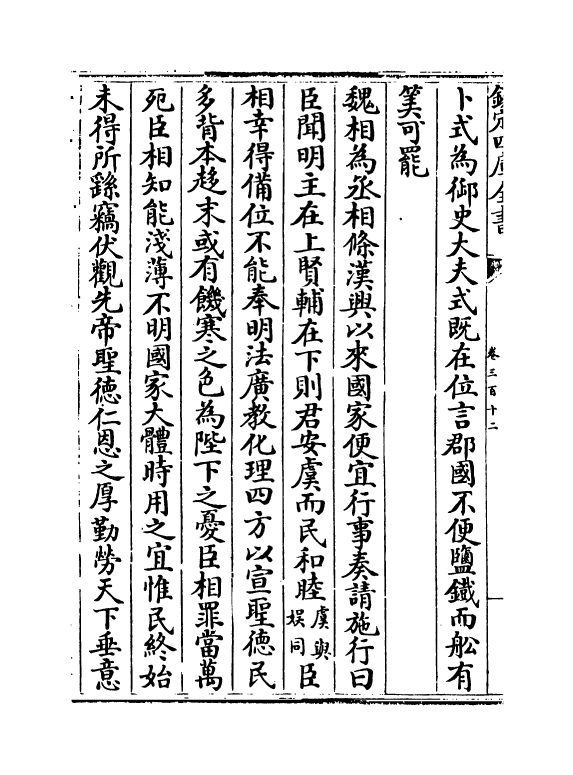 欽定四庫全書
卷三百十二
卜式為御史大夫式既在位言郡國不便鹽鐵而舩有
筭可罷
魏相為丞相條漢興以來國家便宜行事奏請施行曰
臣聞明主在上賢輔在下則君安虞而民和睦虞與娱同臣
相幸得備位不能奉明法廣教化理四方以宣聖德民
多背本趍末或有饑寒之色為陛下之憂臣相罪當萬
死臣相知能淺薄不明國家大體時用之宜惟民終始
未得所繇竊伏觀先帝聖德仁恩之厚勤勞天下垂意